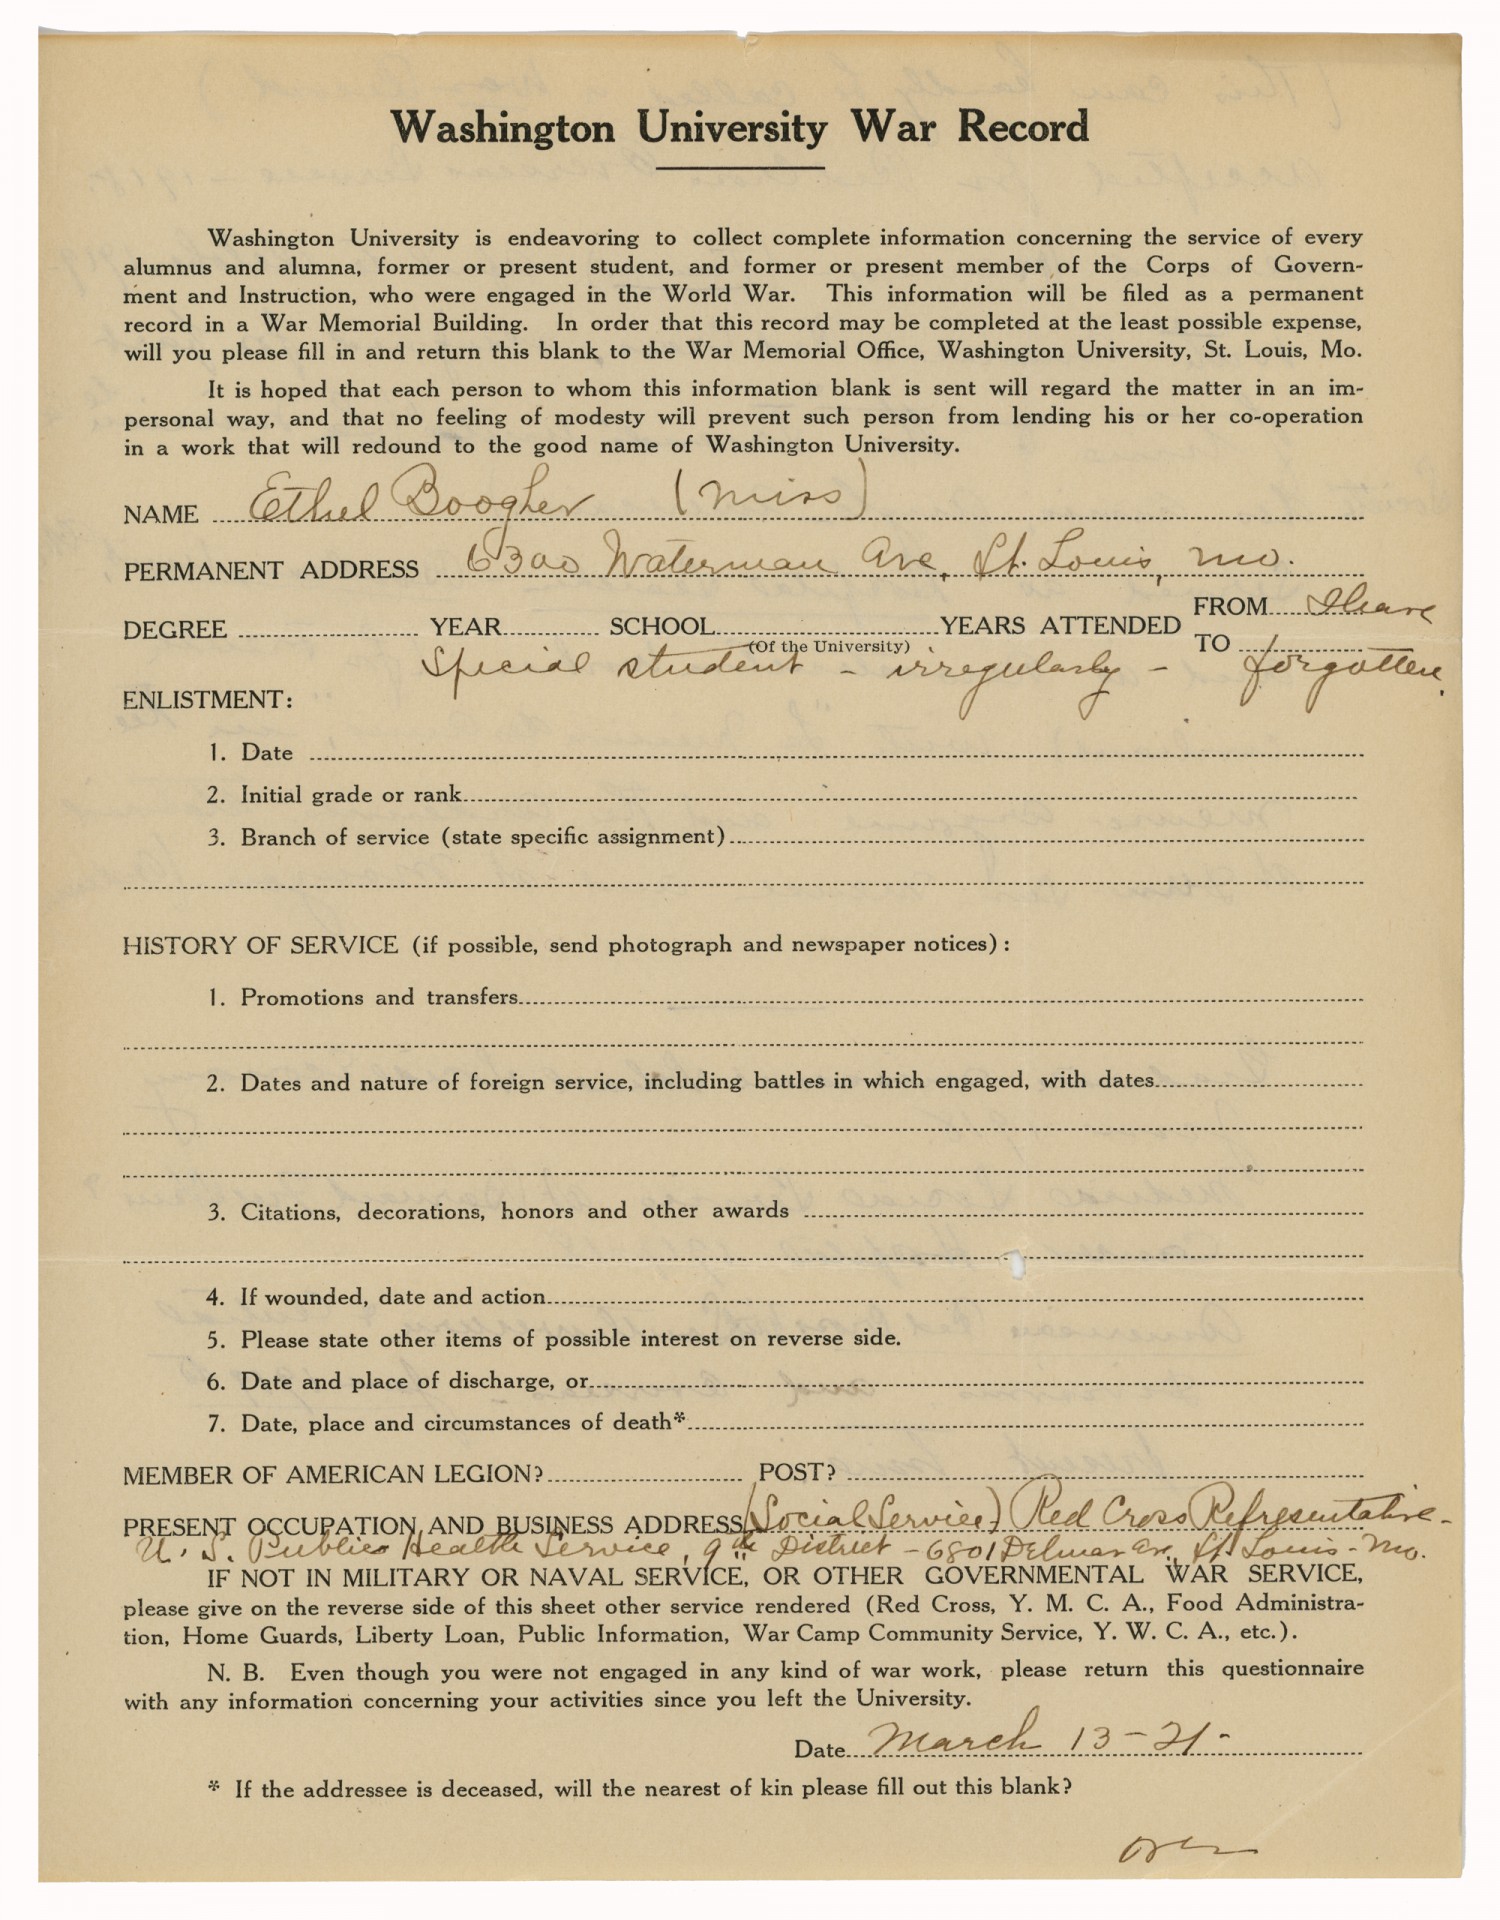 Washington University War Record
Washington University is endeavoring to collect complete information concerning the service of every
alumnus and alumna, former or present student, and former or present member of the Corps of Govern-
ment and Instruction, who were engaged in the World War. This information will be filed as a permanent
record in a War Memorial Building. In order that this record may be completed at the least possible expense,
will you please fill in and return this blank to the War Memorial Office, Washington University, St. Louis, Mo.
It is hoped that each person to whom this information blank is sent will regard the matter in an im-
personal way, and that no feeling of modesty will prevent such person from lending his or her co-operation
in a work that will redound to the good name of Washington University.
NAME Ethel Boogher (Miss)
PERMANENT ADDRESS 6300 Waterman Ave, St. Louis, Mo.
DEGREE YEAR SCHOOL (Of the University) YEARS ATTENDED FROM I have
TO
Special student - irregularly - forgotten.
ENLISTMENT:
1. Date
2. Initial grade or rank
3. Branch of service (state specific assignment)
HISTORY OF SERVICE (if possible, send photograph and newspaper notices):
1. Promotions and transfers
2. Dates and nature of foreign service, including battles in which engaged, with dates
3. Citations, decorations, honors and other awards
4. If wounded, date and action
5. Please state other items of possible interest on reverse side.
6. Date and place of discharge, or
7. Date, place and circumstances of death*
MEMBER OF AMERICAN LEGION? POST?
PRESENT OCCUPATION AND BUSINESS ADDRESS (Social Service) Red Cross Representative -
U. S. Public Health Service, 9th District - 6801 Delmar Av., St. Louis - Mo.
IF NOT IN MILITARY OR NAVAL SERVICE, OR OTHER GOVERNMENTAL WAR SERVICE,
please give on the reverse side of this sheet other service rendered (Red Cross, Y. M. C. A., Food Administra-
tion, Home Guards, Liberty Loan, Public Information, War Camp Community Service, Y. W. C. A., etc.).
N. B. Even though you were not engaged in any kind of war work, please return this questionnaire
with any information concerning your activities since you left the University.
Date March 13 - 21 -
* If the addressee is deceased, will the nearest of kin please fill out this blank?
over